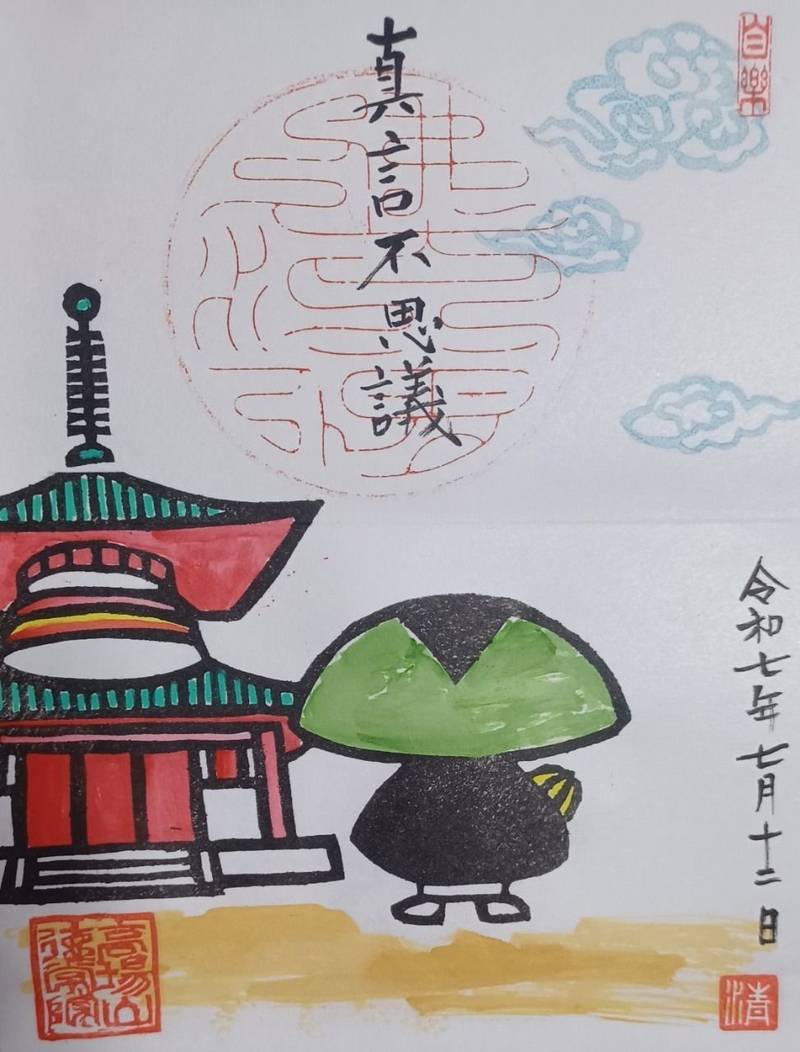 真言不思議
自樂
令和七年七月十二日
清